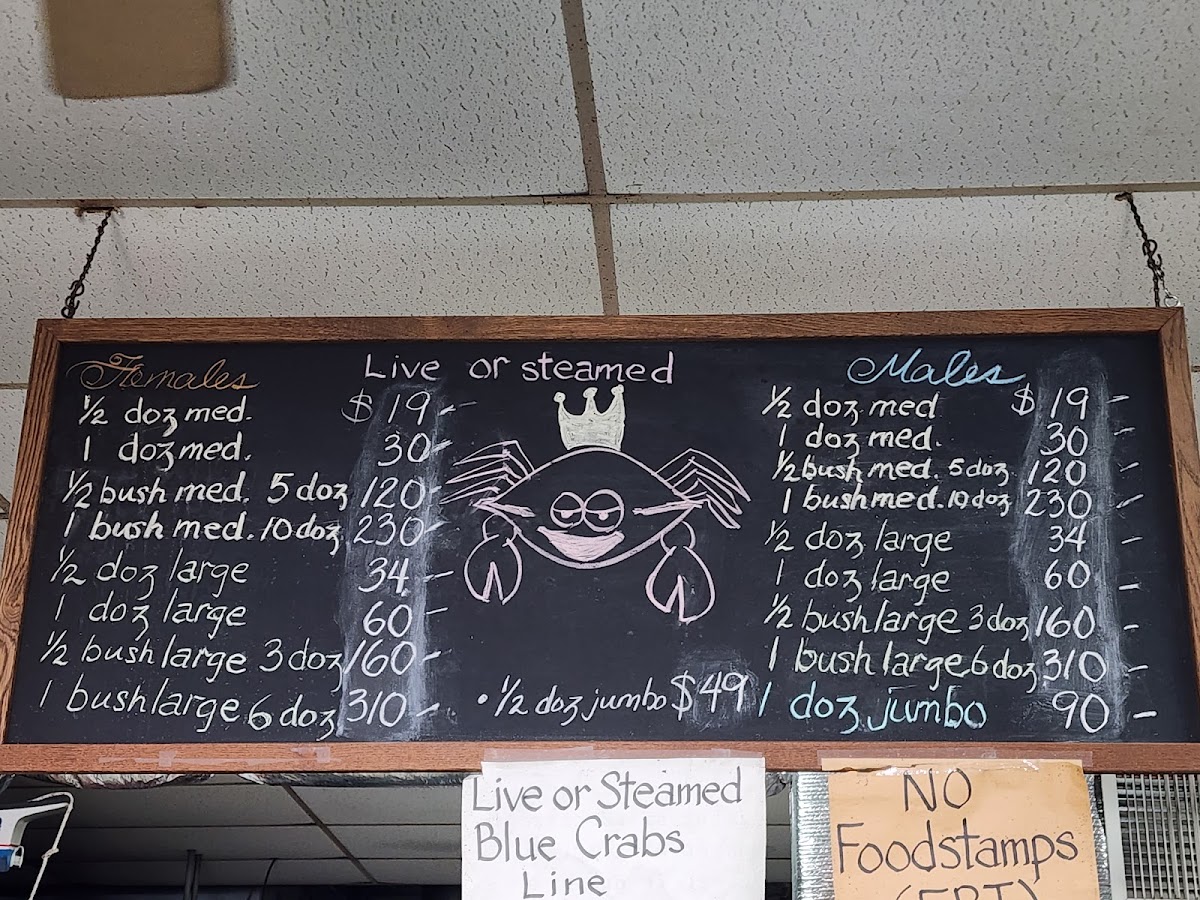 Live or steamed
Females
½ doz med. $19
1 doz med. 30
½ bush med. 5 doz 120
1 bush med. 10 doz 230
½ doz large 34
1 doz large 60
½ bush large 3 doz 160
1 bush large 6 doz 310
Males
½ doz med $19
1 doz med. 30
½ bush med. 5 doz 120
1 bush med. 10 doz 230
½ doz large 34
1 doz large 60
½ bush large 3 doz 160
1 bush large 6 doz 310
• ½ doz jumbo $49
1 doz jumbo 90
Live or Steamed
Blue Crabs
Line
NO
Foodstamps
(EBT)